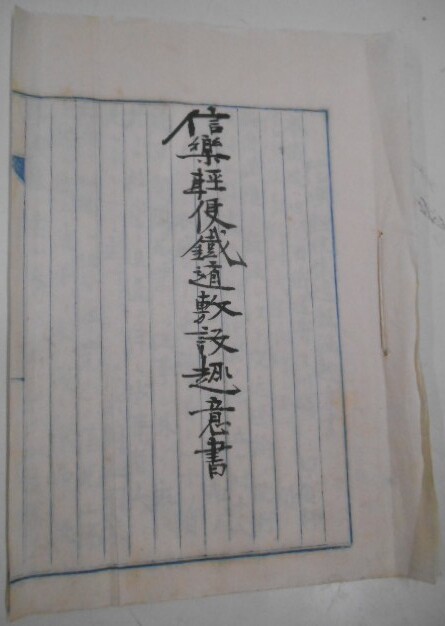 信樂輕便鐵道敷設趣意書